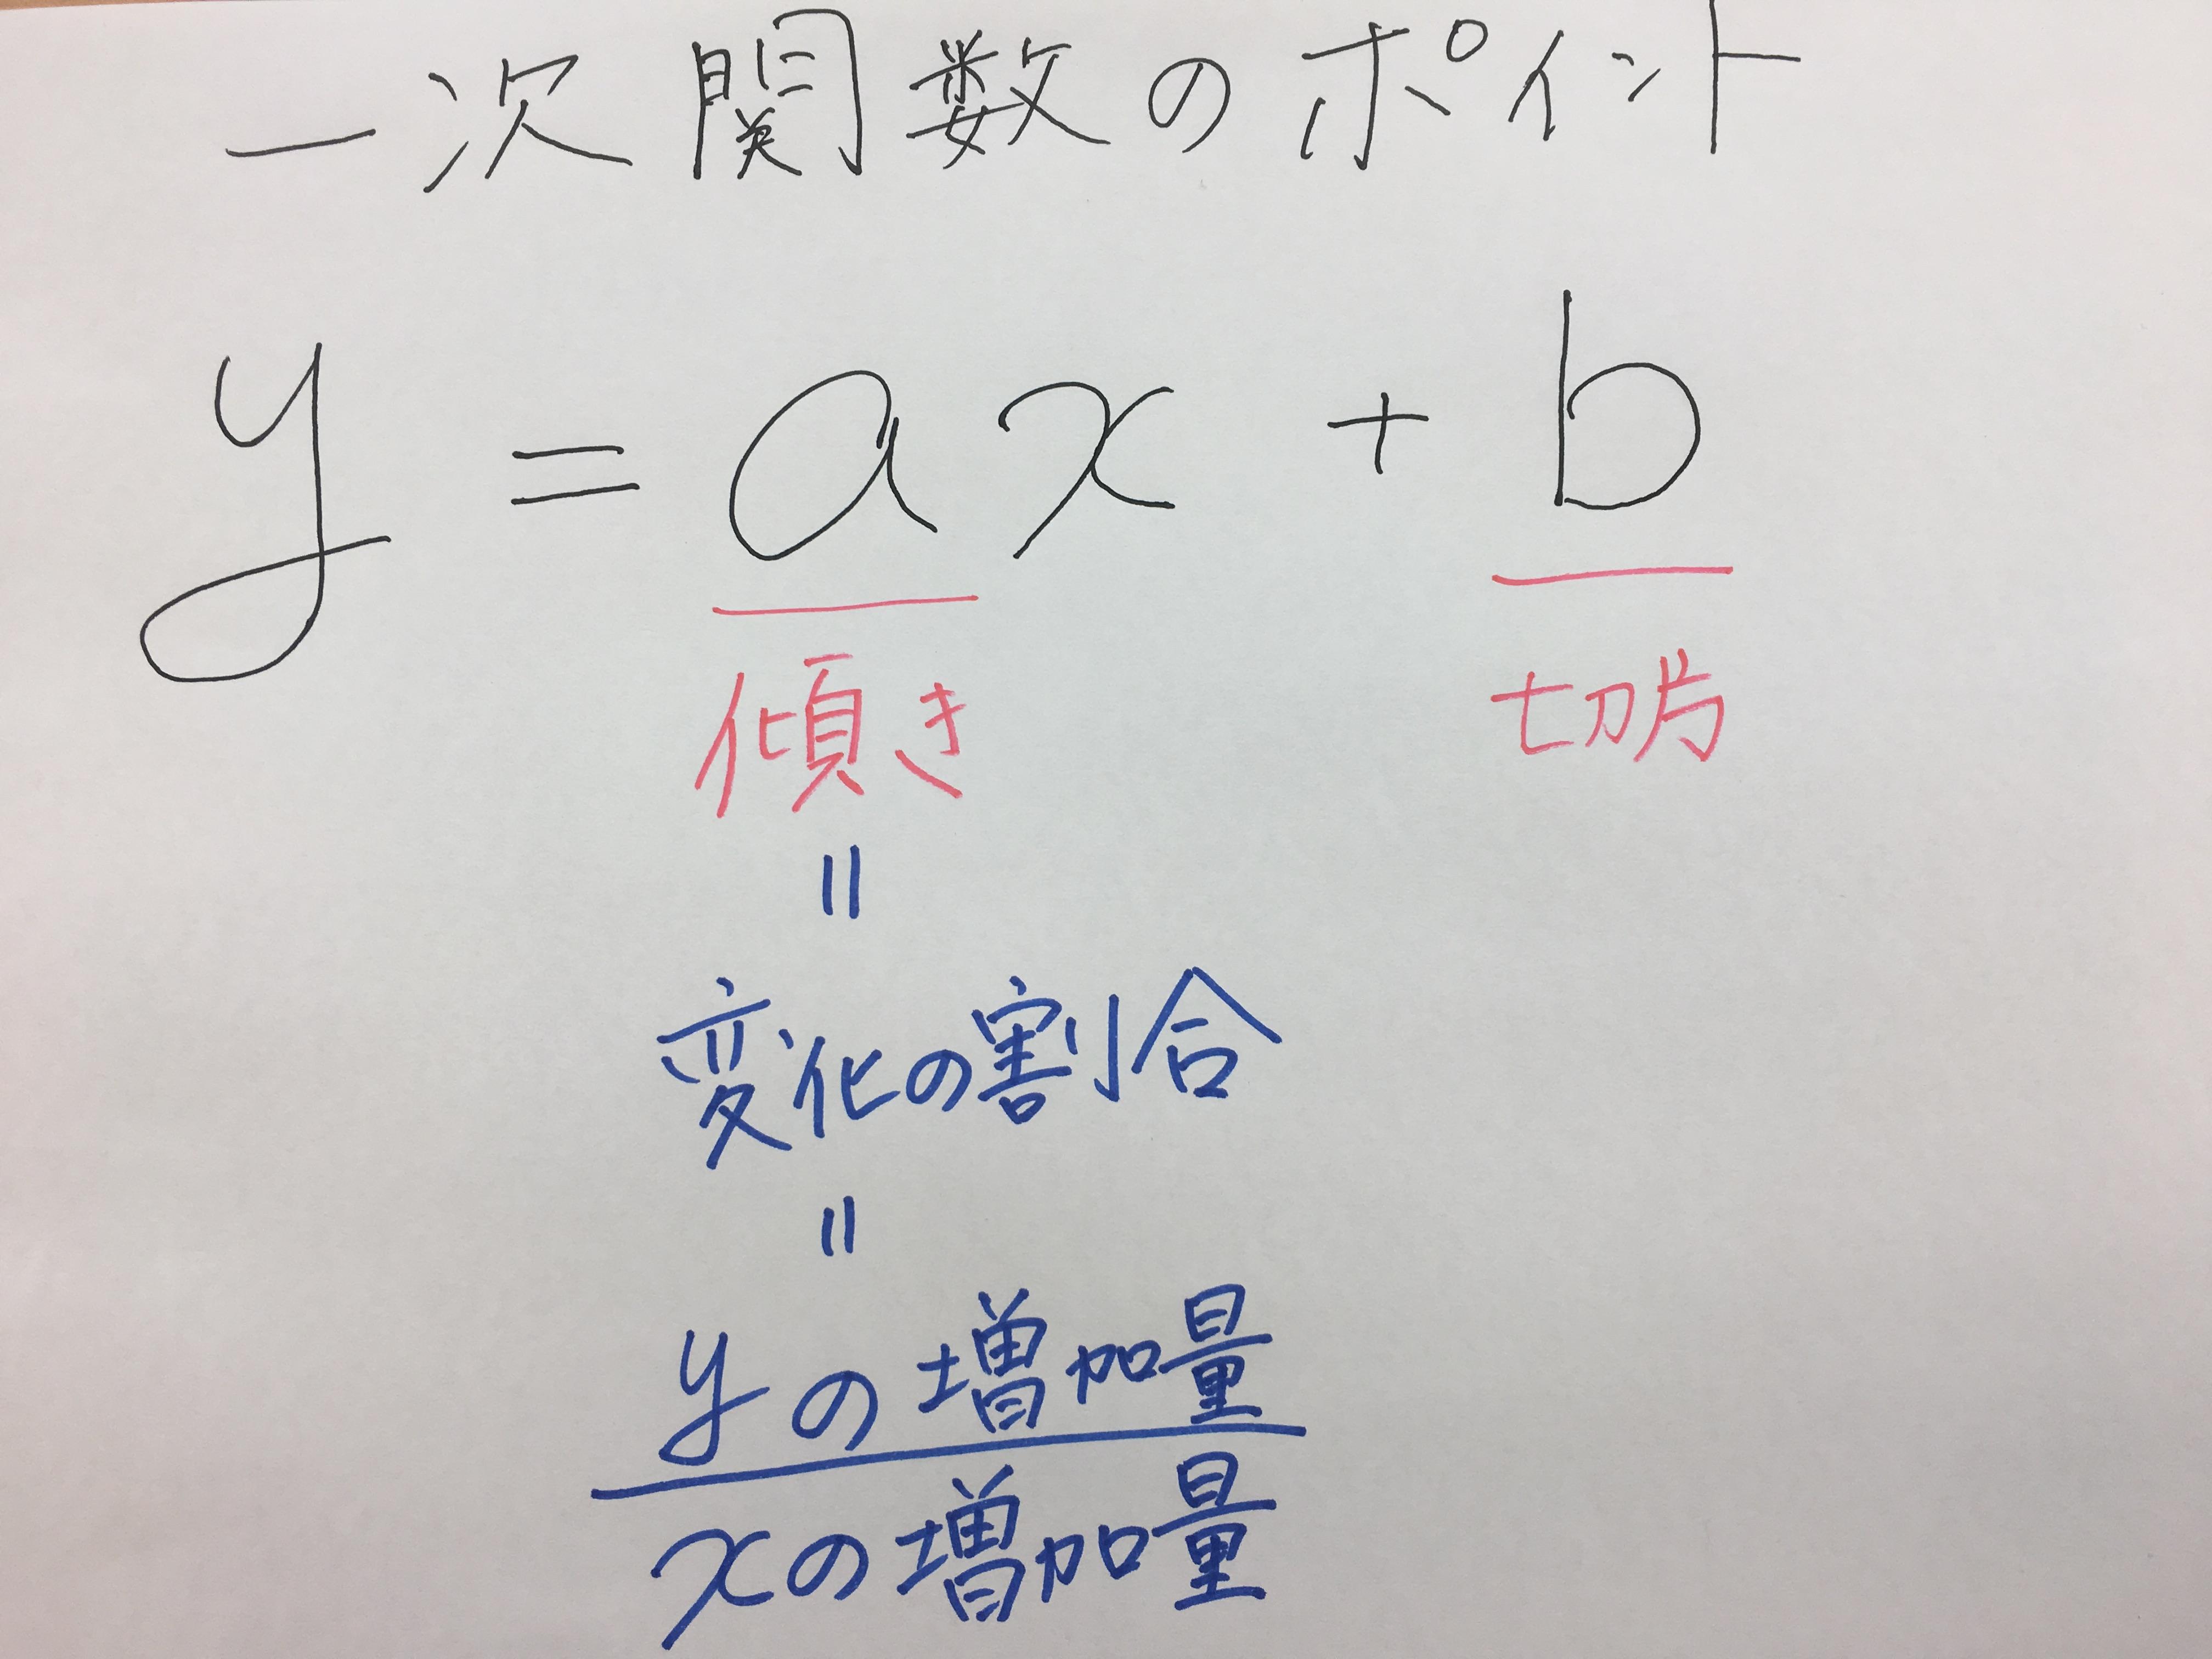 一次関数のポイント
y = ax + b
傾き 切片
=
変化の割合
=
yの増加量
xの増加量